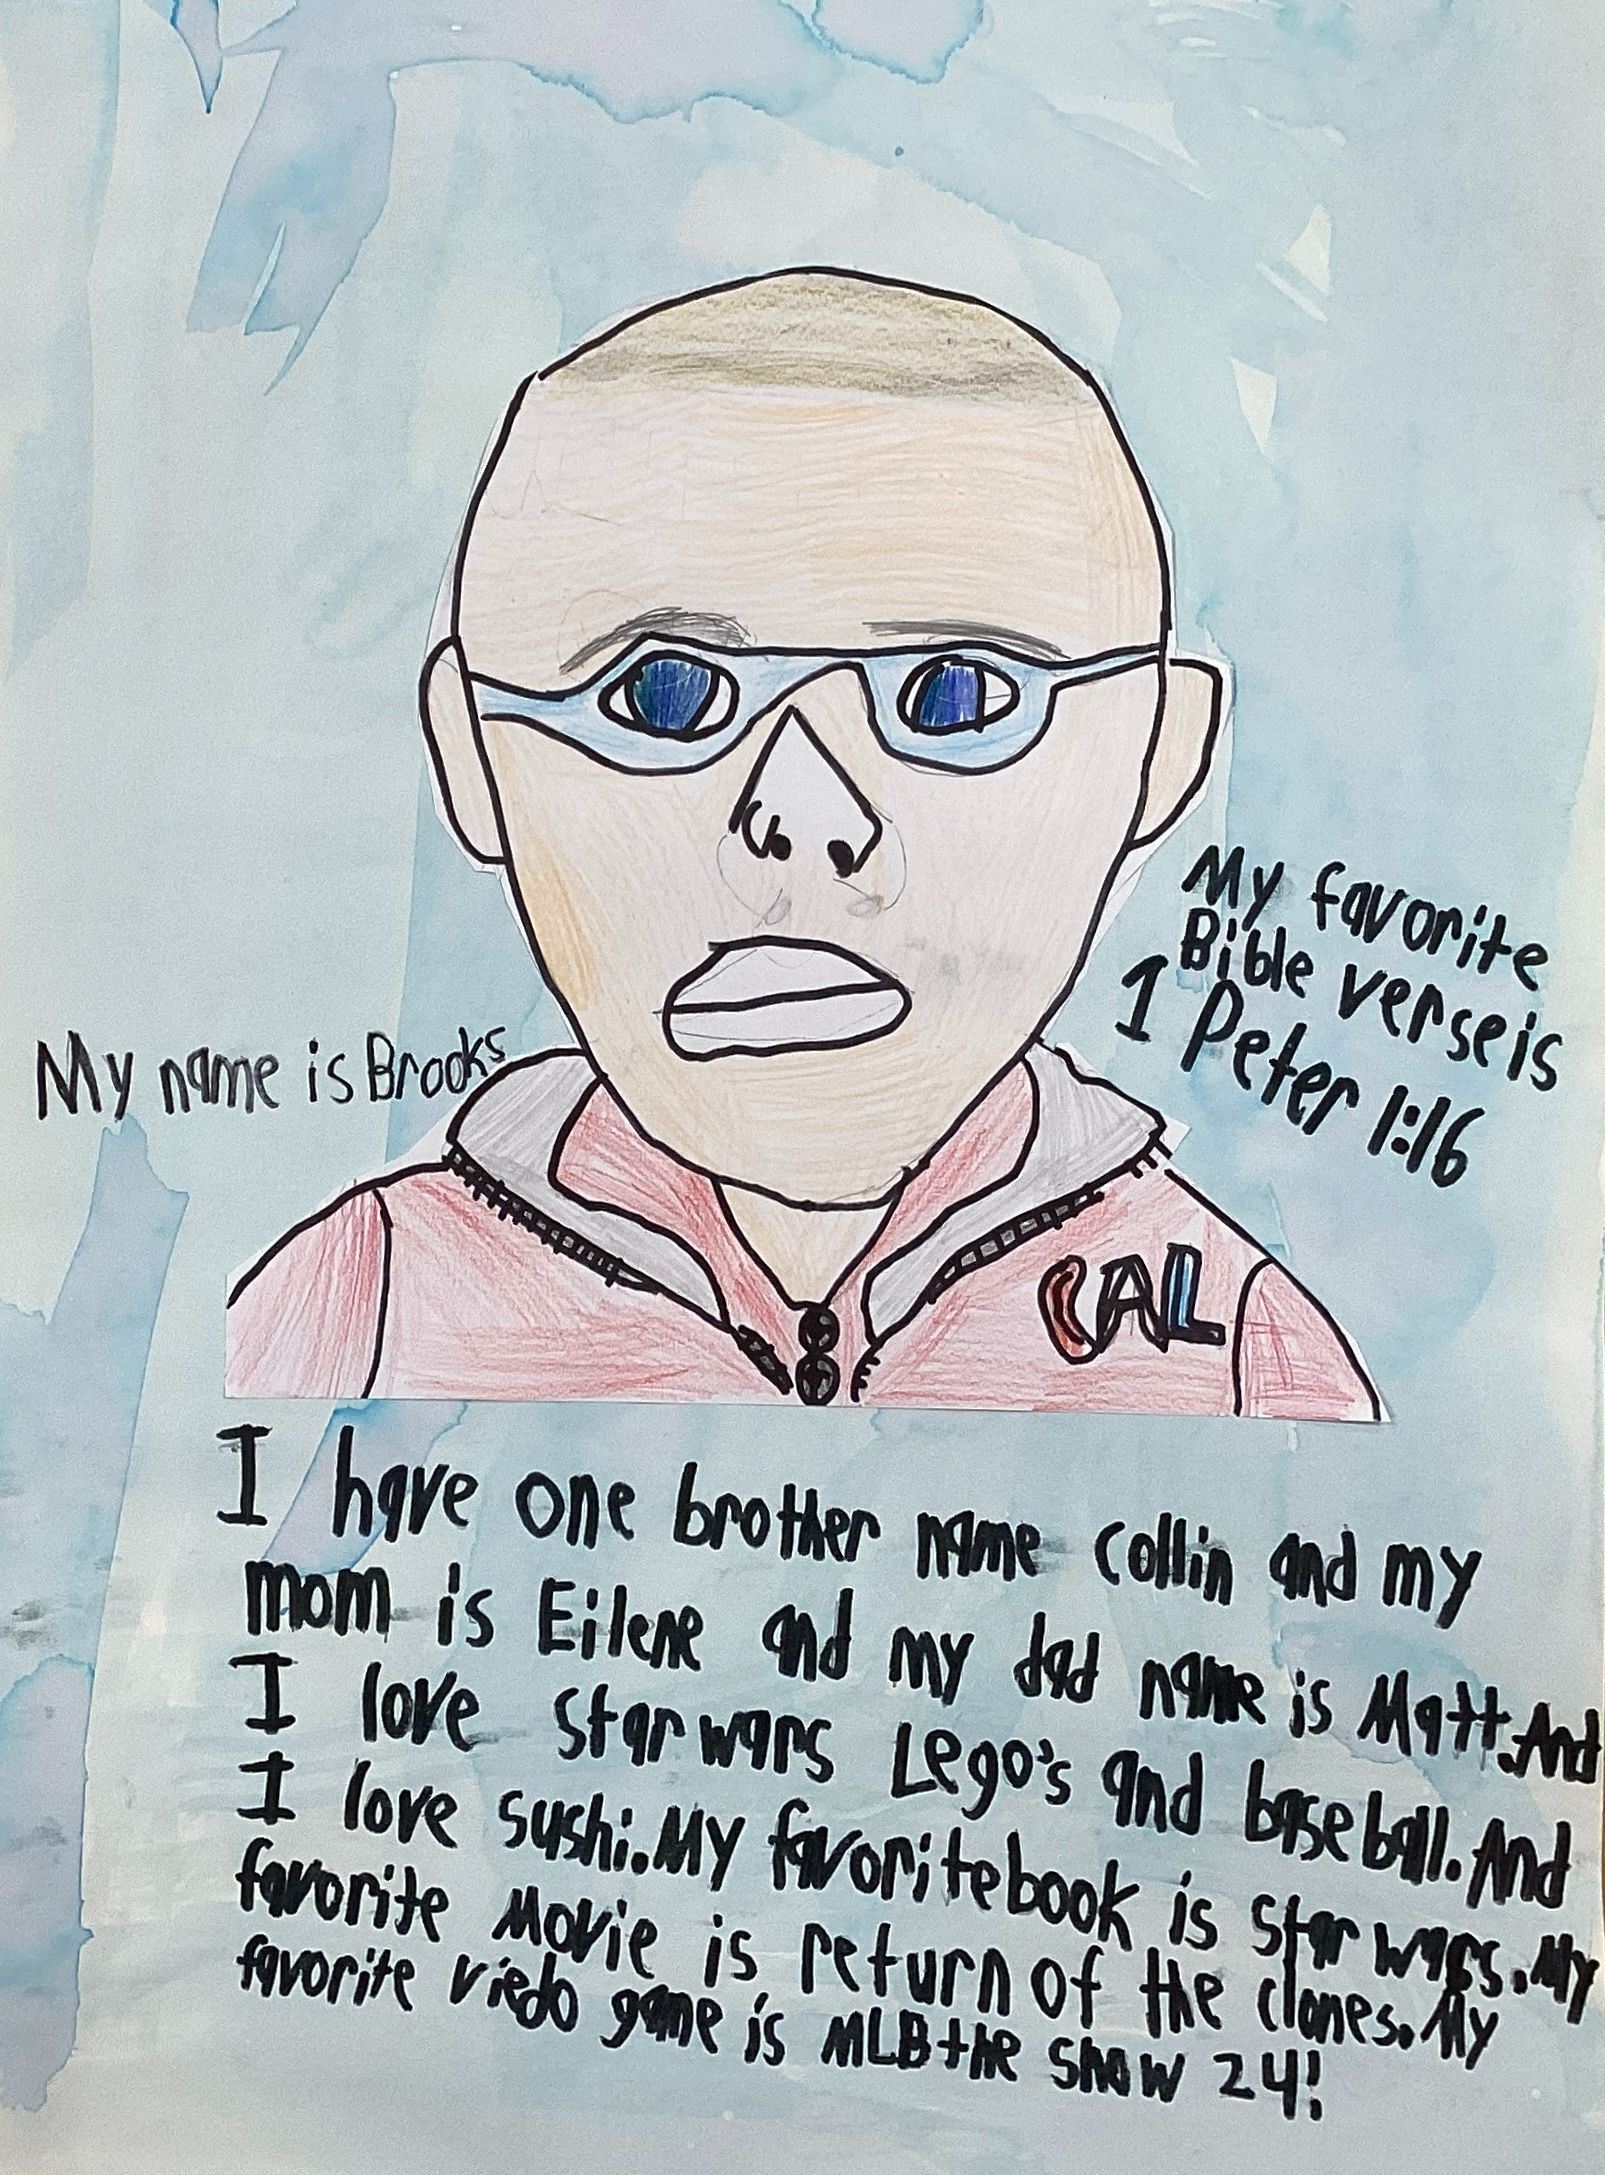 My favorite
Bible verse is
I Peter 1:16
My name is Brooks
CAL
I have one brother name Collin and my
mom is Eilene and my dad name is Matt. And
I love star wars Lego's and baseball. And
I love sushi. My favorite book is star wars. My
favorite Movie is return of the clones. My
favorite viedo game is MLB the show 24!